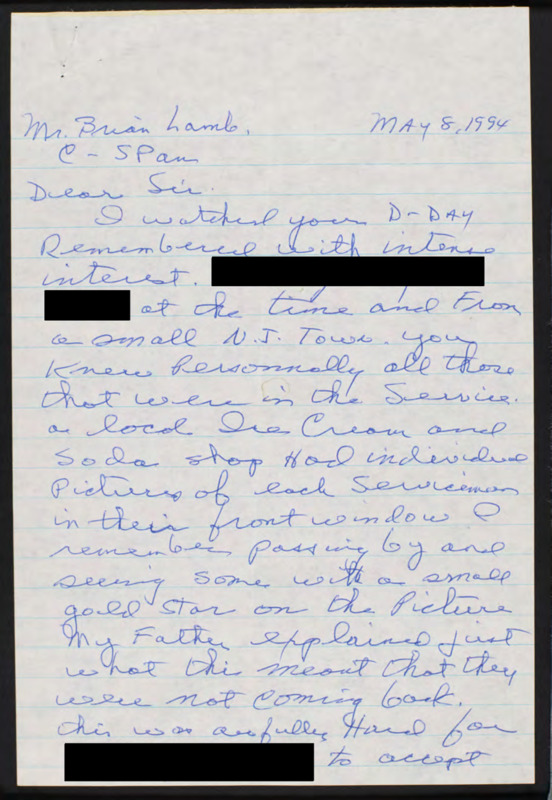 Mr. Brian Lamb. MAY 8, 1994
C-SPan
Dear Sir.
I watched your D-DAY
Remembered with intense
interest.
at the time and From
a small N.J. Town. you
Knew Personnally all those
that were in the Service.
a local Ice Cream and
Soda shop Had individual
Pictures of each Serviceman
in their front window I
remember passing by and
seeing some with a small
gold Star on the Picture
My Father explained just
what this meant that they
were not coming back.
this was awfully Hard for
to accept